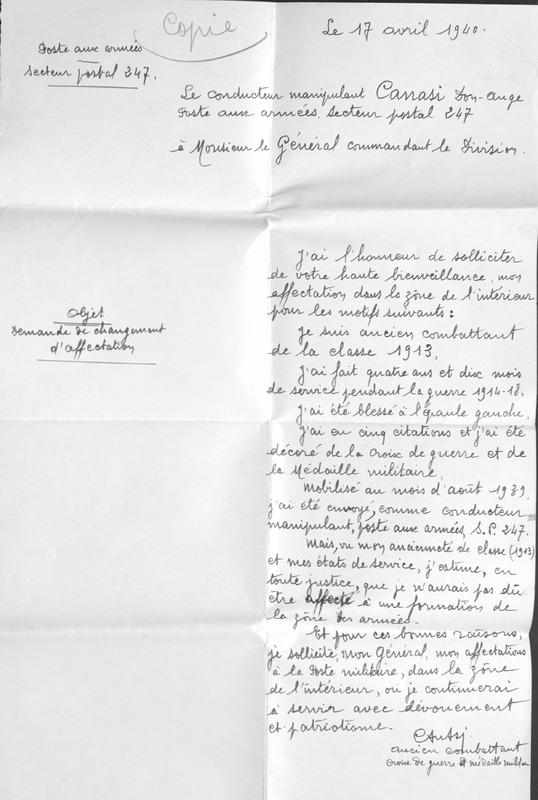 Copie
Le 17 avril 1940.
Poste aux armées
secteur postal 247.
Le conducteur manipulant Canasi Don-Ange
Poste aux armées, secteur postal 247
à Monsieur le Général commandant la Division.
Objet
Demande de changement
d'affectation
J'ai l'honneur de solliciter
de votre haute bienveillance, mon
affectation dans la zône de l'intérieur
pour les motifs suivants :
Je suis ancien combattant
de la classe 1913.
J'ai fait quatre ans et dix mois
de service pendant la guerre 1914-18.
J'ai été blessé à l'épaule gauche.
J'ai eu cinq citations et j'ai été
décoré de la croix de guerre et de
la Médaille militaire.
Mobilisé au mois d'août 1939,
j'ai été envoyé, comme conducteur
manipulant, poste aux armées, S.P. 247.
Mais, vu mon ancienneté de classe (1913)
et mes états de service, j'estime, en
toute justice, que je n'aurais pas dû
être affecté à une formation de
la zône des armées.
Et pour ces bonnes raisons,
je sollicite, mon Général, mon affectations
à la Poste militaire, dans la zône
de l'intérieur, où je continuerai
à servir avec dévouement
et patriotisme.
ancien combattant
croix de guerre et médaille milit